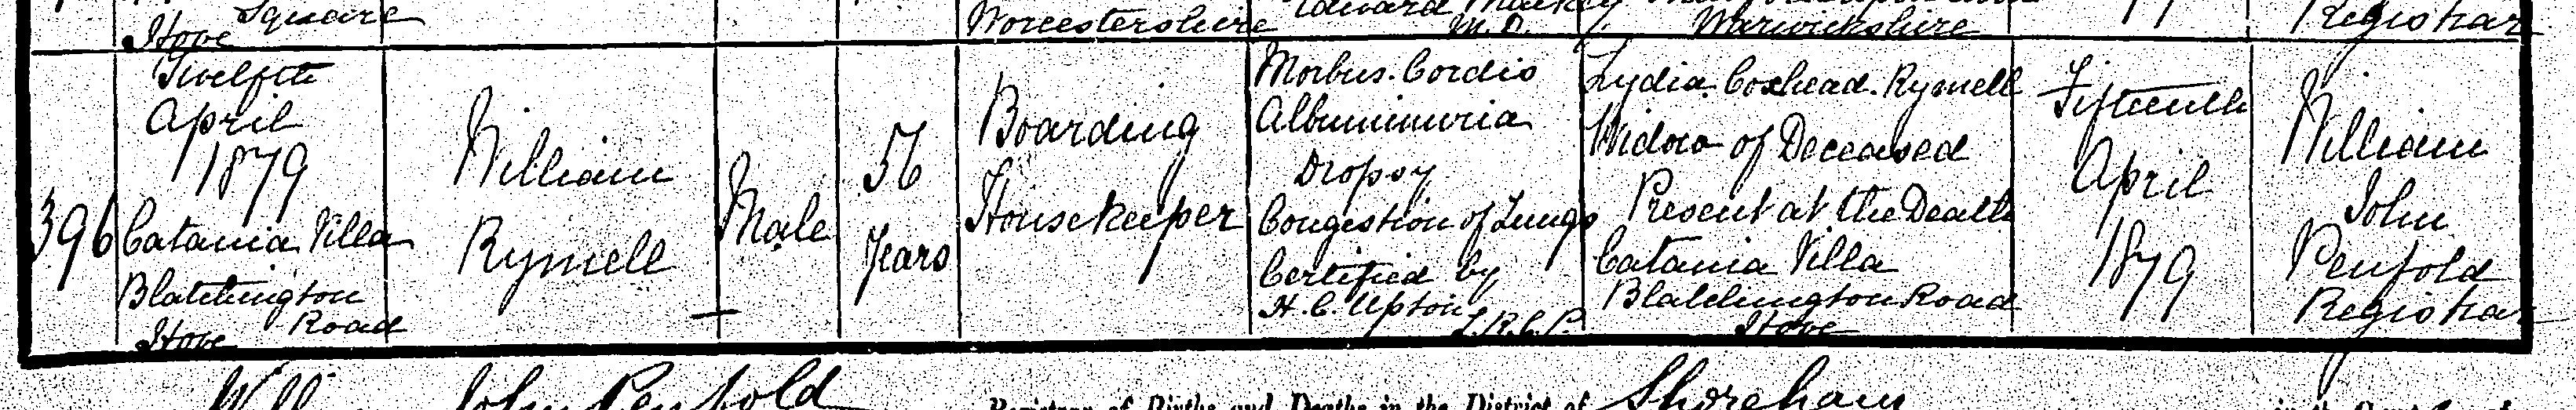 Square
Hove
Worcestershire
Edward
M.D.
Warwickshire
Registrar
396
Twelfth
April
1879
Catania Villa
Blatchington
Road
Hove
William
Rymell
Male
56
Years
Boarding
Housekeeper
Morbus. Cordis
Albuminuria
Dropsy
Congestion of Lungs
Certified by
H. C. Upton
L.R.C.P.
Lydia. Coxhead. Rymell
Widow of Deceased
Present at the Death
Catania Villa
Blatchington Road
Hove
Fifteenth
April
1879
William
John
Penfold
Registrar
John Penfold
Registrar of Births and Deaths in the District of Shoreham